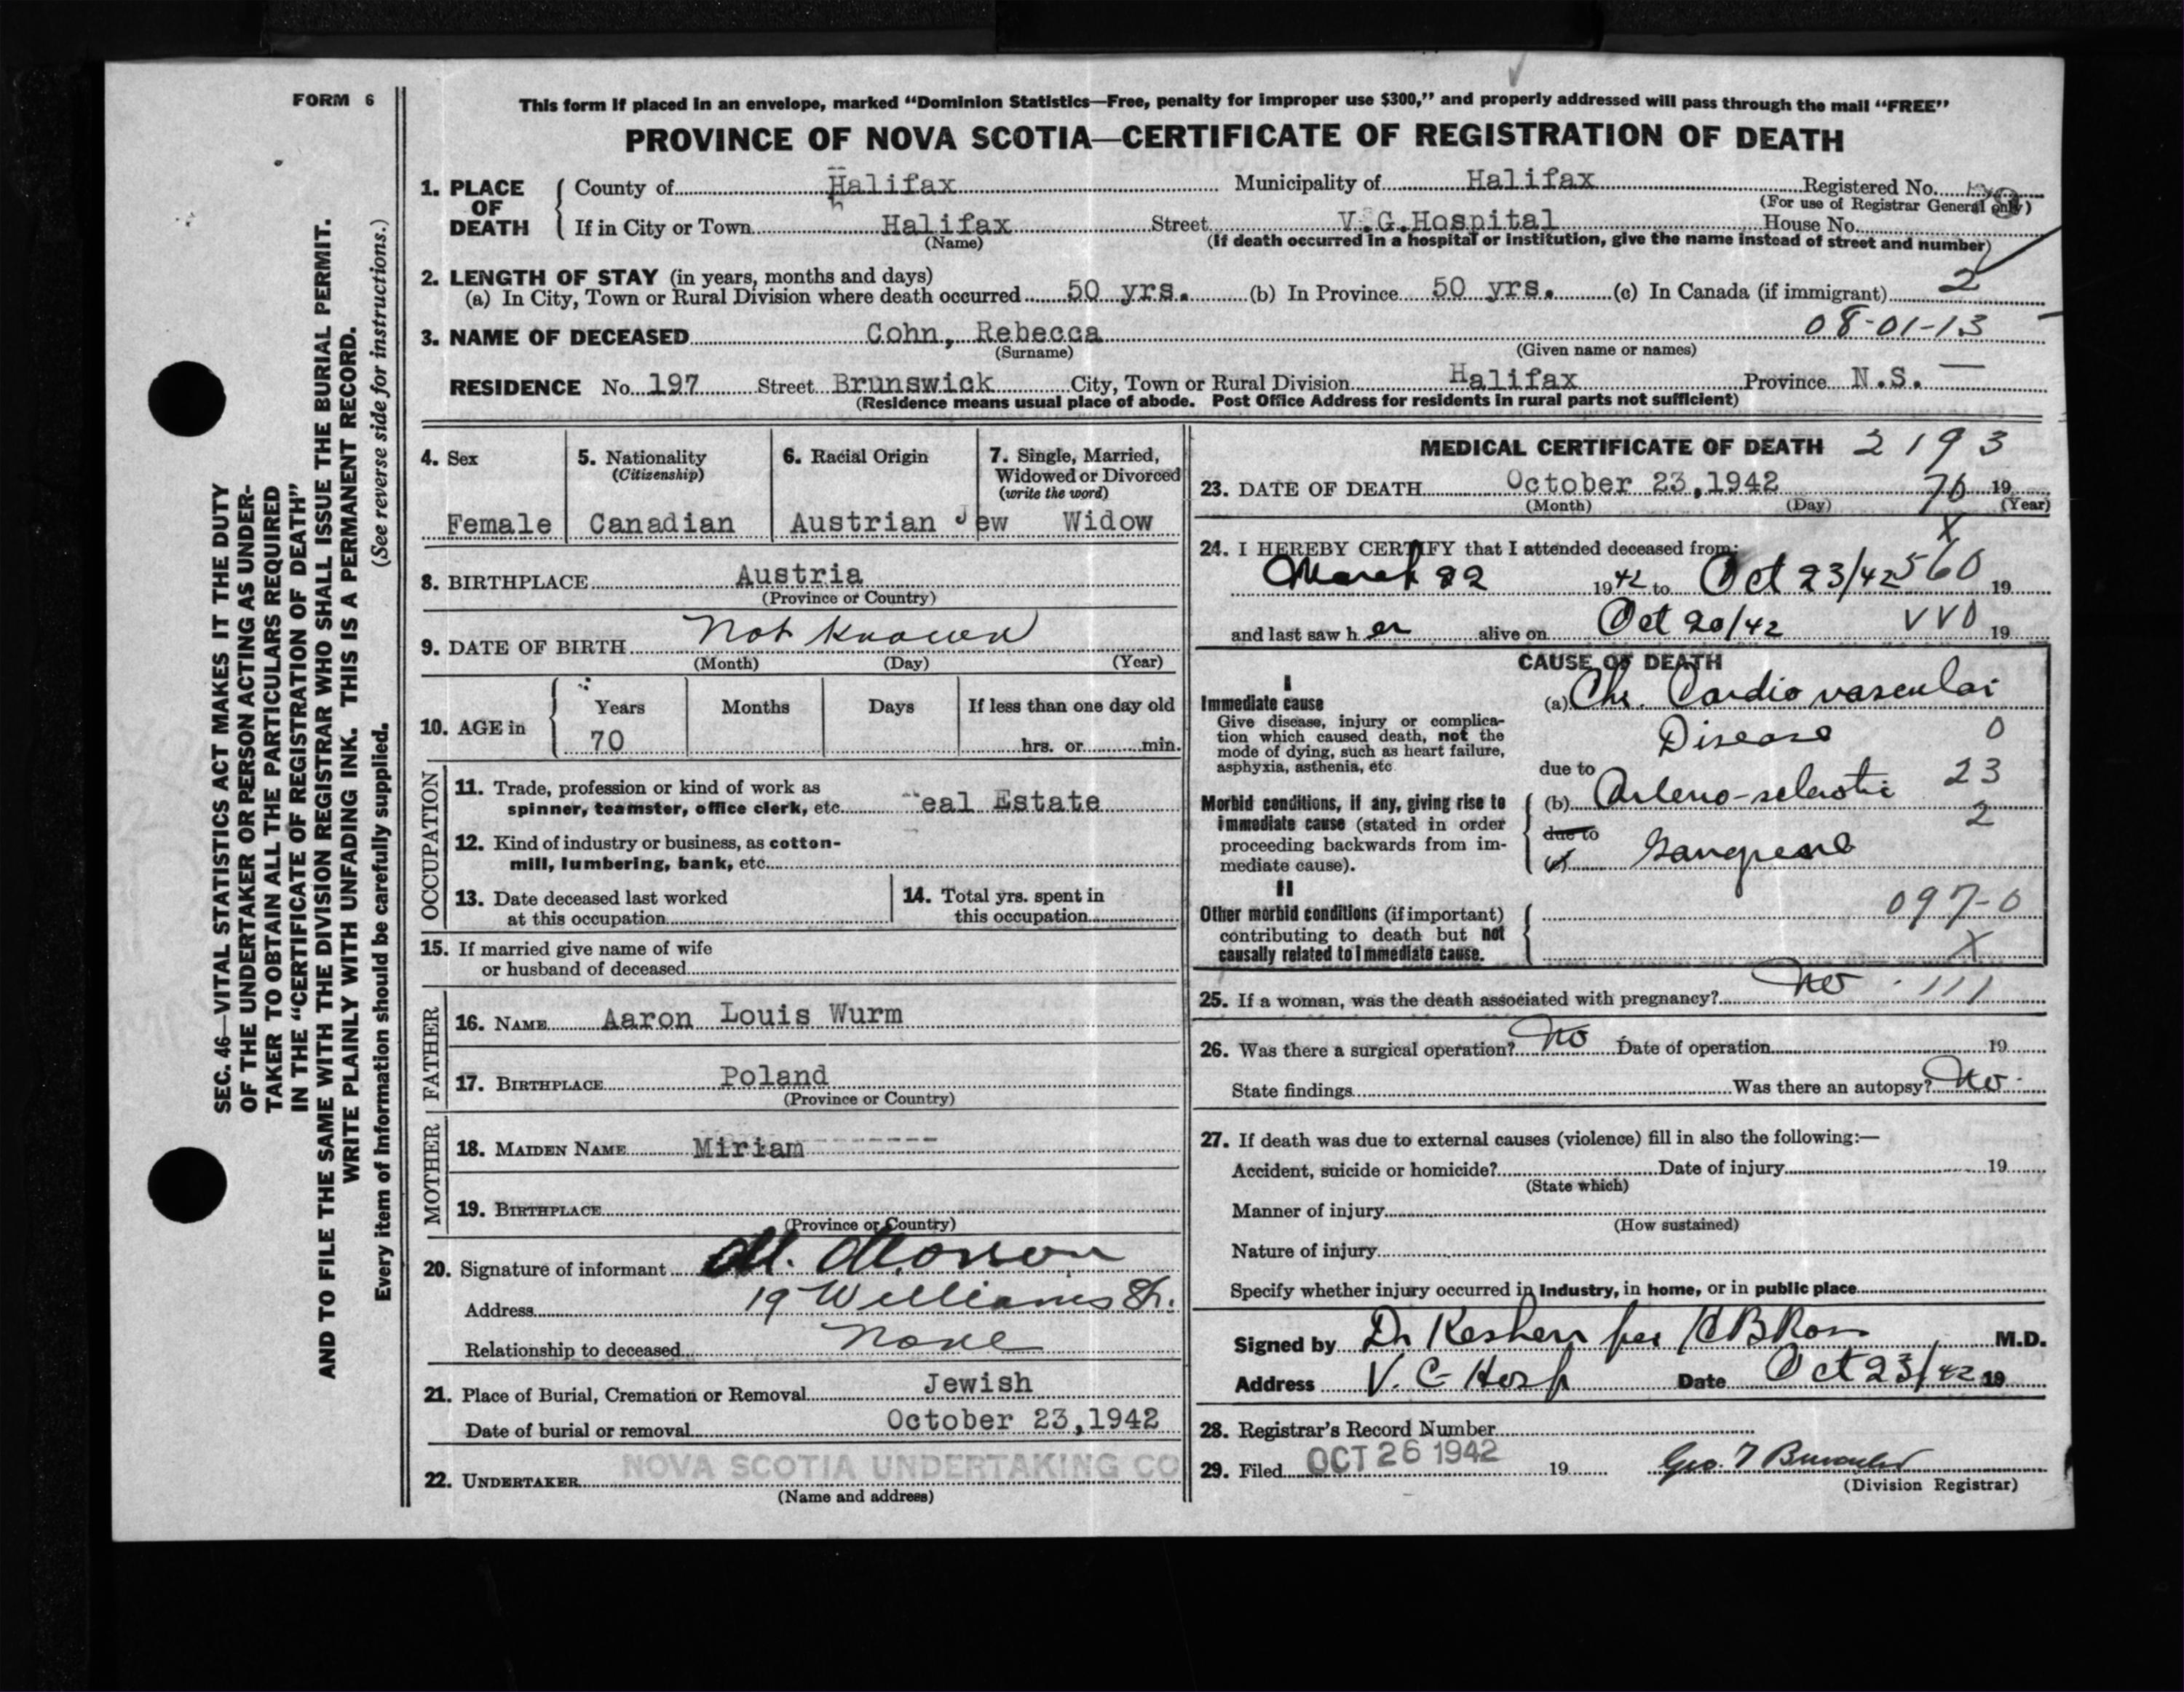 FORM 6
This form if placed in an envelope, marked “Dominion Statistics—Free, penalty for improper use $300,” and properly addressed will pass through the mail “FREE”
PROVINCE OF NOVA SCOTIA—CERTIFICATE OF REGISTRATION OF DEATH
1. PLACE OF DEATH
County of Halifax Municipality of Halifax Registered No.
(For use of Registrar General only)
If in City or Town Halifax Street V.G.Hospital House No.
(Name) (If death occurred in a hospital or institution, give the name instead of street and number)
2. LENGTH OF STAY (in years, months and days)
(a) In City, Town or Rural Division where death occurred 50 yrs. (b) In Province 50 yrs. (c) In Canada (if immigrant) 2
08-01-13
3. NAME OF DECEASED Cohn, Rebecca
(Surname) (Given name or names)
RESIDENCE No. 197 Street Brunswick City, Town or Rural Division Halifax Province N.S.
(Residence means usual place of abode. Post Office Address for residents in rural parts not sufficient)
4. Sex
Female
5. Nationality
(Citizenship)
Canadian
6. Racial Origin
Austrian Jew
7. Single, Married,
Widowed or Divorced
(write the word)
Widow
8. BIRTHPLACE Austria
(Province or Country)
9. DATE OF BIRTH Not Known
(Month) (Day) (Year)
10. AGE in
Years Months Days If less than one day old
70 hrs. or min.
OCCUPATION
11. Trade, profession or kind of work as
spinner, teamster, office clerk, etc. eal Estate
12. Kind of industry or business, as cotton-
mill, lumbering, bank, etc.
13. Date deceased last worked
at this occupation
14. Total yrs. spent in
this occupation
15. If married give name of wife
or husband of deceased
FATHER
16. NAME Aaron Louis Wurm
17. BIRTHPLACE Poland
(Province or Country)
MOTHER
18. MAIDEN NAME Miriam --------
19. BIRTHPLACE
(Province or Country)
20. Signature of informant M.
Address 19 Williams St.
Relationship to deceased None
21. Place of Burial, Cremation or Removal Jewish
Date of burial or removal October 23,1942
22. UNDERTAKER NOVA SCOTIA UNDERTAKING CO
(Name and address)
MEDICAL CERTIFICATE OF DEATH 2193
23. DATE OF DEATH October 23,1942 70 19
(Month) (Day) (Year)
X
24. I HEREBY CERTIFY that I attended deceased from:
March 22 1942 to Oct 23/42 560 19
and last saw her alive on Oct 20/42 VVO 19
CAUSE OF DEATH
I
Immediate cause
Give disease, injury or complica-
tion which caused death, not the
mode of dying, such as heart failure,
asphyxia, asthenia, etc
(a) Chr. Cardio vascular
Disease 0
due to
Morbid conditions, if any, giving rise to
immediate cause (stated in order
proceeding backwards from im-
mediate cause).
(b) Arterio-sclerotic 23
due to 2
(c) Gangrene
II
Other morbid conditions (if important)
contributing to death but not
causally related to immediate cause.
097-0
X
25. If a woman, was the death associated with pregnancy? No 111
26. Was there a surgical operation? No Date of operation 19
State findings Was there an autopsy? No.
27. If death was due to external causes (violence) fill in also the following:—
Accident, suicide or homicide? Date of injury 19
(State which)
Manner of injury
(How sustained)
Nature of injury
Specify whether injury occurred in industry, in home, or in public place
Signed by Dr Keshen per B Ross M.D.
Address V. G Hosp Date Oct 23/42 19
28. Registrar's Record Number
29. Filed OCT 26 1942 19 Geo.
(Division Registrar)
SEC. 46—VITAL STATISTICS ACT MAKES IT THE DUTY
OF THE UNDERTAKER OR PERSON ACTING AS UNDER-
TAKER TO OBTAIN ALL THE PARTICULARS REQUIRED
IN THE “CERTIFICATE OF REGISTRATION OF DEATH”
AND TO FILE THE SAME WITH THE DIVISION REGISTRAR WHO SHALL ISSUE THE BURIAL PERMIT.
WRITE PLAINLY WITH UNFADING INK. THIS IS A PERMANENT RECORD.
Every item of information should be carefully supplied. (See reverse side for instructions.)